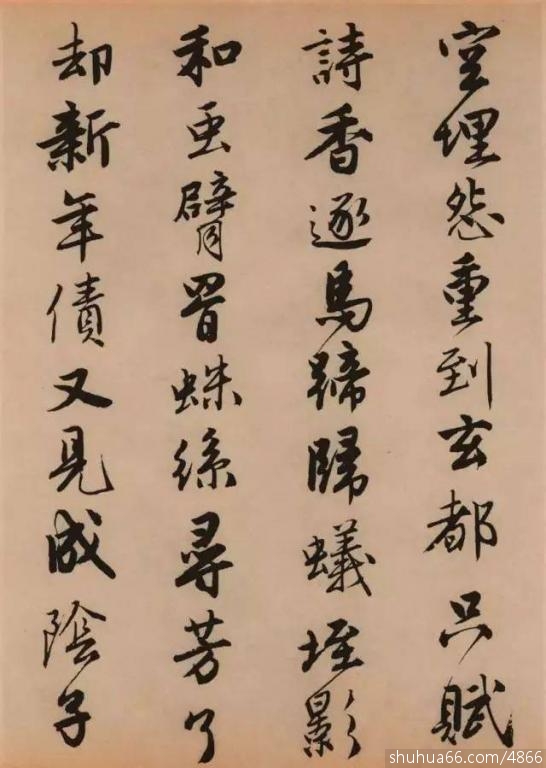 空埋怨重到玄都只賦
詩香逐馬蹄歸蟻垤影
和虫臂罥蛛絲尋芳了
却新年債又見成陰子
shuhua66.com/4866